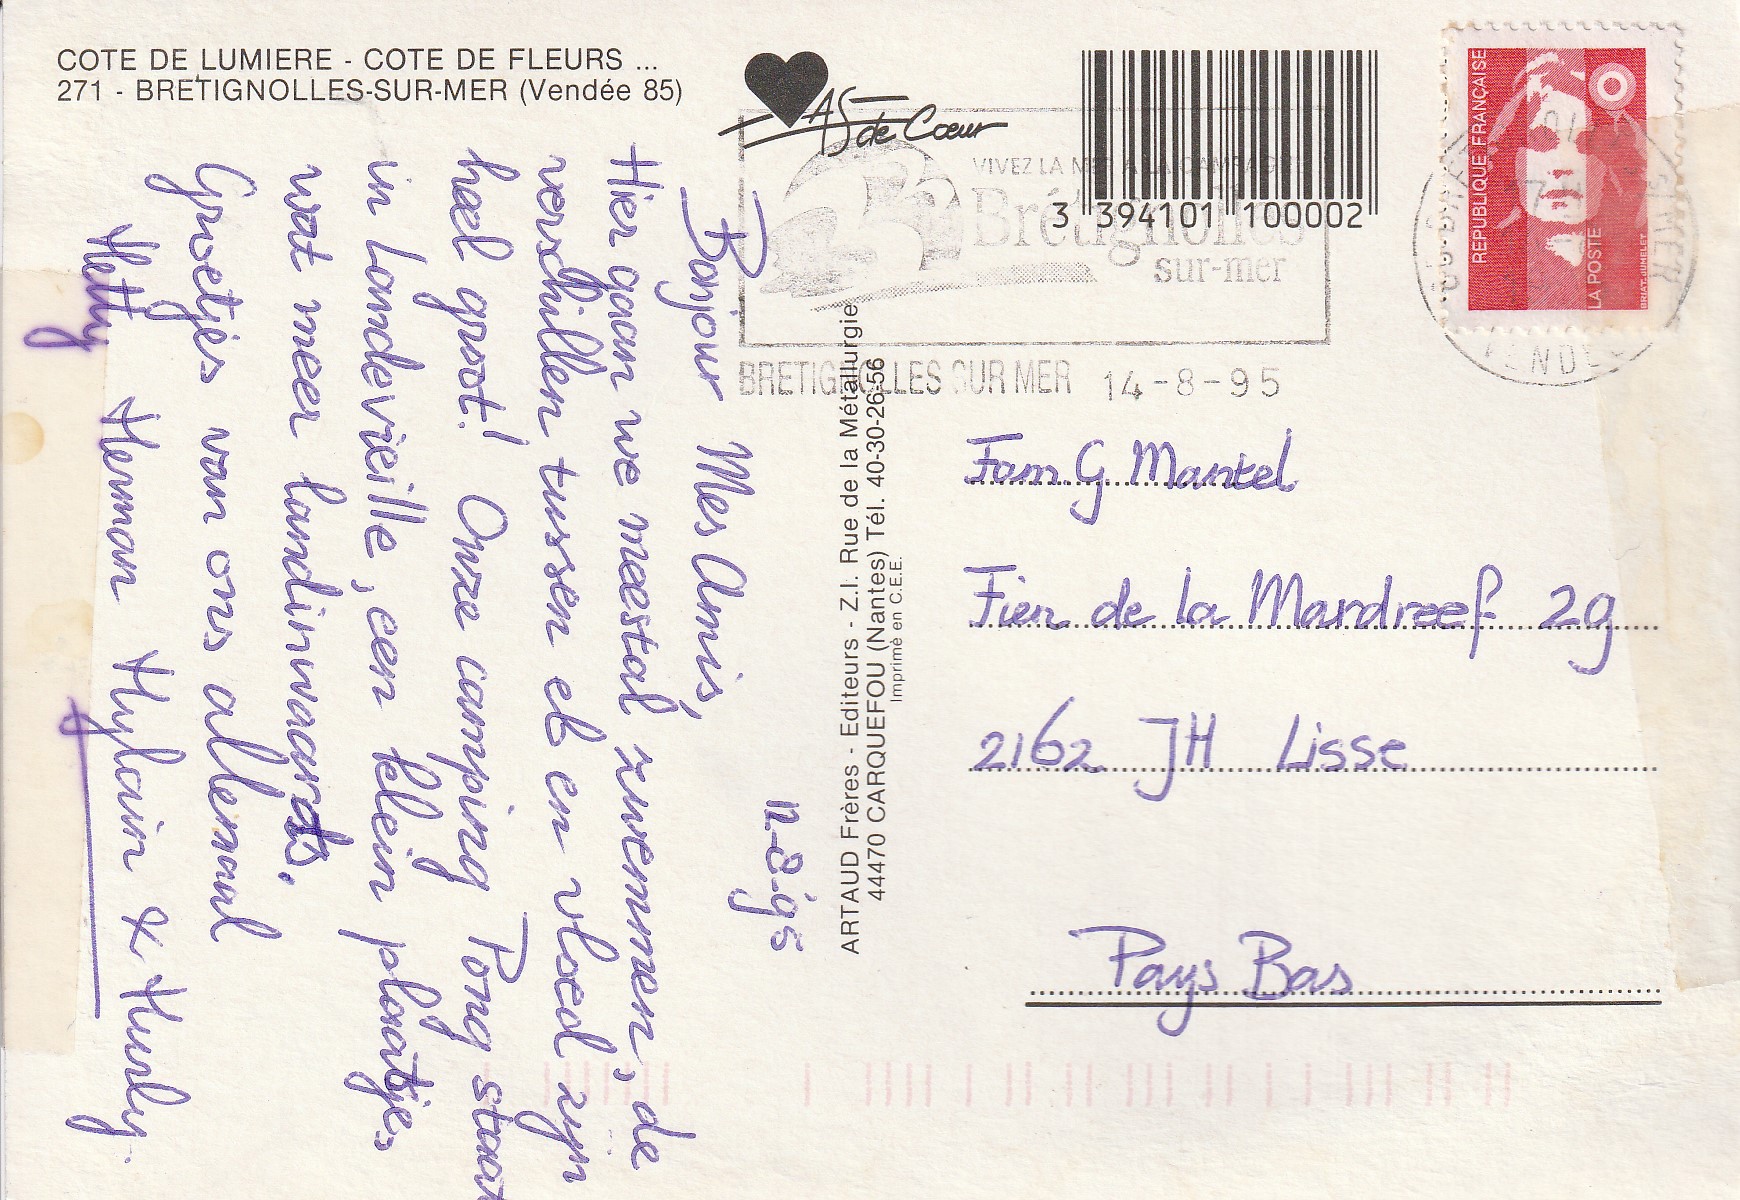 COTE DE LUMIERE - COTE DE FLEURS ...
271 - BRETIGNOLLES-SUR-MER (Vendée 85)
AS de Cœur
3 394101 100002
VIVEZ LA MER A LA CAMPAGNE
Brétignolles
sur-mer
BRETIGNOLLES SUR MER 14-8-95
REPUBLIQUE FRANÇAISE
LA POSTE
BRIAT-JUMELET
VENDEE
12-8-95
Bonjour Mes Amis,
Hier gaan we meestal zwemmen, de
verschillen tussen eb en vloed zijn
heel groot! Onze camping Pong staat
in Landevieille, een klein plaatsje,
wat meer landinwaards.
Groetjes van ons allemaal
Hetty Herman Hylain & Huurly.
ARTAUD Frères - Editeurs - Z.I. Rue de la Métallurgie
44470 CARQUEFOU (Nantes) Tél. 40-30-26-56
Imprimé en C.E.E.
Fam. G. Mantel
Fien de la Mardreef 29
2162 JH Lisse
Pays Bas